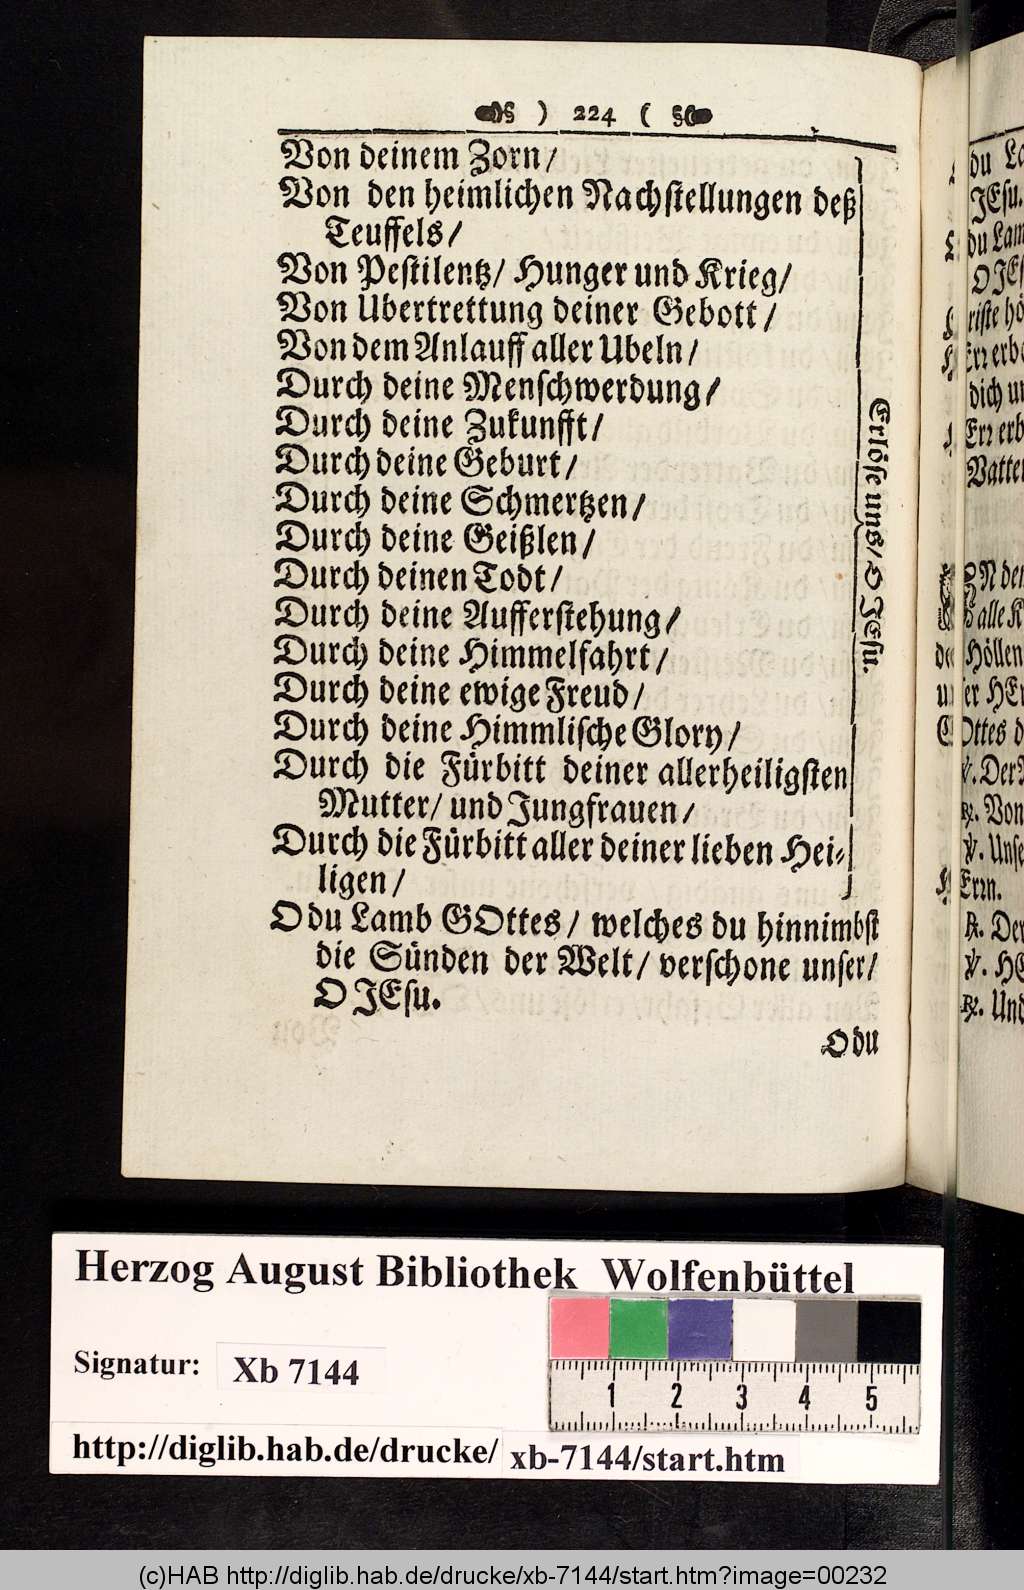 ) 224 (
Von deinem Zorn/
Von den heimlichen Nachſtellungen deß
Teuffels/
Von Peſtilentz/ Hunger und Krieg/
Von Ubertrettung deiner Gebott/
Von dem Anlauff aller Ubeln/
Durch deine Menſchwerdung/
Durch deine Zukunfft/
Durch deine Geburt/
Durch deine Schmertzen/
Durch deine Geißlen/
Durch deinen Todt/
Durch deine Aufferſtehung/
Durch deine Himmelfahrt/
Durch deine ewige Freud/
Durch deine Himmliſche Glory/
Durch die Fürbitt deiner allerheiligſten
Mutter/ und Jungfrauen/
Durch die Fürbitt aller deiner lieben Hei-
ligen/
Erlöſe uns/ O JEſu.
O du Lamb GOttes/ welches du hinnimbſt
die Sünden der Welt/ verſchone unſer/
O JEſu.
O du
du
JEſu.
du Lam
O JEſ
dich
Vatter
alle
Höllen
Ottes
℣. Der
℟. Von
℣. Unſe
℟. Der
℣. HE
℟. Und
Herzog August Bibliothek Wolfenbüttel
Signatur: Xb 7144
1 2 3 4 5
http://diglib.hab.de/drucke/ xb-7144/start.htm
(c)HAB http://diglib.hab.de/drucke/xb-7144/start.htm?image=00232